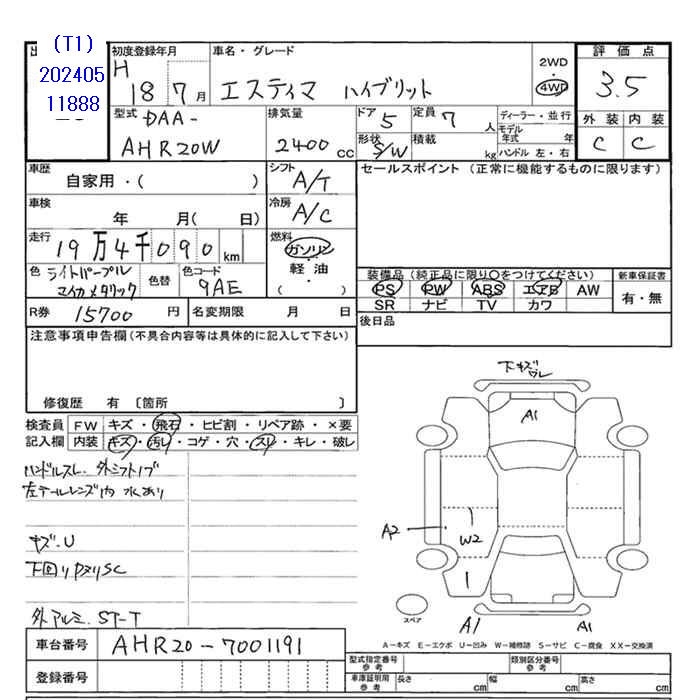 (T1)
202405
11888
初度登録年月
H 18 7 月
車名・グレード
エスティマ ハイブリット
2WD
・
4WD
評価点
3.5
外装 内装
C C
型式 DAA-
AHR20W
排気量
2400 cc
ドア 5
形状 S/W
定員 7 人
積載 kg
ディーラー・並行
モデル年式 年
ハンドル 左・右
車歴
自家用・( )
シフト
A/T
セールスポイント (正常に機能するものに限ります)
車検
年 月( 日)
冷房
A/C
走行
19万4千090 km
燃料
ガソリン
・
軽油
・
( )
色 ライトパープル
マイカメタリック
色替
色コード
9AE
装備品(純正品に限り〇をつけてください)
PS PW ABS エアB AW
SR ナビ TV カワ
新車保証書
有・無
R券 15700 円
名変期限 月 日
後日品
注意事項申告欄(不具合内容等は具体的に記入して下さい)
修復歴 有 〔箇所 〕
検査員
記入欄
FW キズ・飛石・ヒビ割・リペア跡・×要
内装 キズ・汚レ・コゲ・穴・スレ・キレ・破レ
ハンドルスレ. 外シフトノブ
左テールレンズ内 水あり
キズ・U
下回りPヌリSC
外アルミ. ST-T
下キズ
A1
A2
W2
スペア
A1
A1
A-キズ E-エクボ U-凹み W-補修跡 S-サビ C-腐食 XX-交換済
車台番号 AHR20-7001191
登録番号
型式指定番号
参考
類別区分番号
参考
車庫証明用
参考
長さ cm 幅 cm 高さ cm